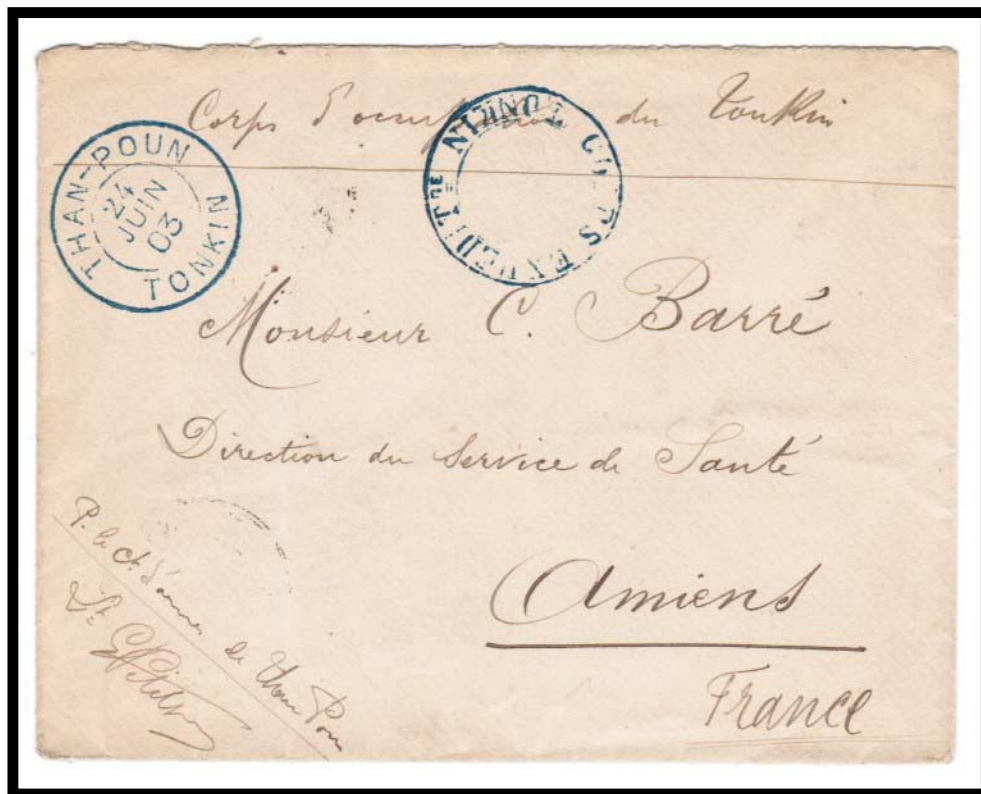 Corps d'occupation du Tonkin
THAN-POUN
24
JUIN
03
TONKIN
CORPS EXPEDITRE TONKIN
Monsieur C. Barré
Direction du Service de Santé
Amiens
France
P. le Ct d'armes de Than Poun
Lt